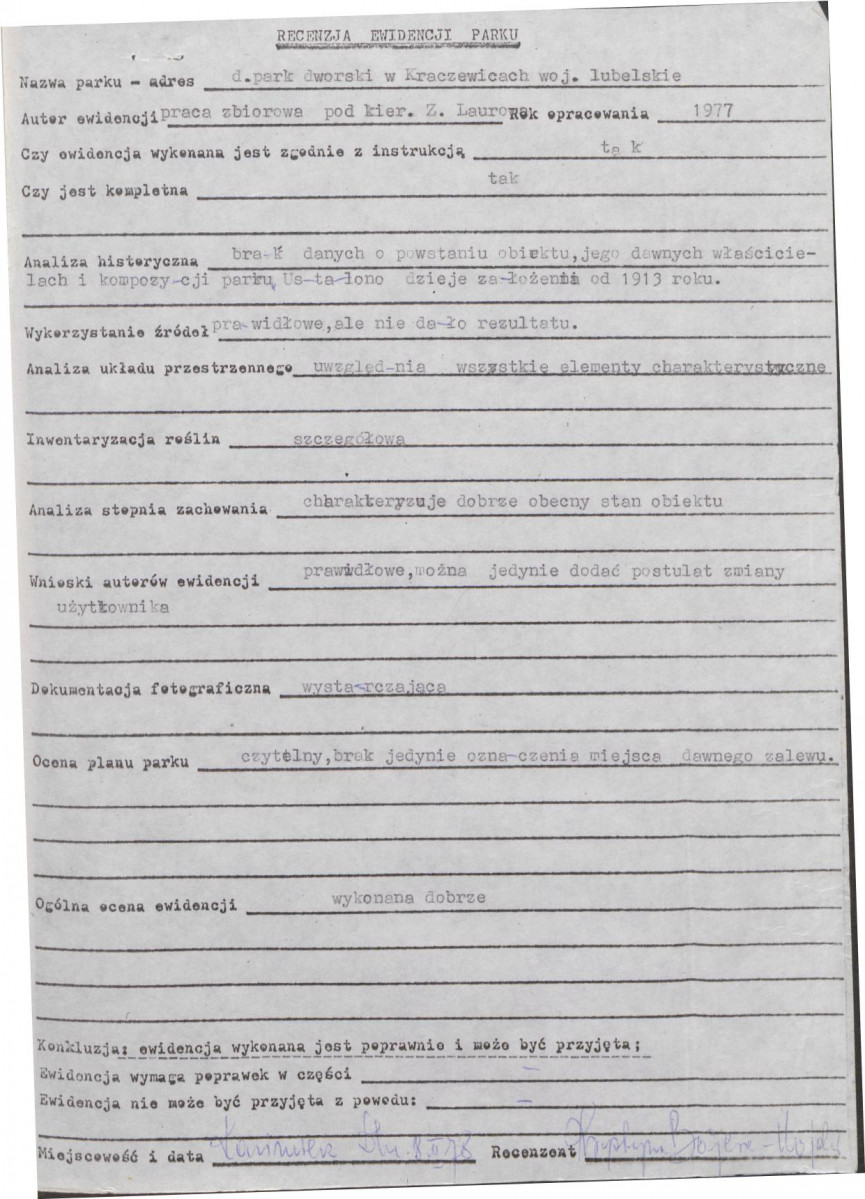 RECENZJA EWIDENCJI PARKU
Nazwa parku - adres d.park dworski w Kraczewicach woj. lubelskie
Autor ewidencji praca zbiorowa pod kier. Z. Laurowa Rok opracowania 1977
Czy ewidencja wykonana jest zgodnie z instrukcją ta k
Czy jest kompletna tak
Analiza historyczna bra-k danych o powstaniu obiektu,jego dawnych właścicie-
lach i kompozy-cji parku, Us-ta-lono dzieje za-łożenia od 1913 roku.
Wykorzystanie źródeł pra-widłowe,ale nie da-ło rezultatu.
Analiza układu przestrzennego uwzględ-nia wszystkie elementy charakterystyczne
Inwentaryzacja roślin szczegółowa
Analiza stopnia zachowania charakteryzuje dobrze obecny stan obiektu
Wnioski autorów ewidencji prawidłowe,można jedynie dodać postulat zmiany
użytkownika
Dokumentacja fotograficzna wysta-rczająca
Ocena planu parku czytelny,brak jedynie ozna-czenia miejsca dawnego zalewu.
Ogólna ocena ewidencji wykonana dobrze
Konkluzja: ewidencja wykonana jest poprawnie i może być przyjęta;
Ewidencja wymaga poprawek w części -
Ewidencja nie może być przyjęta z powodu: -
Miejscowość i data Recenzent